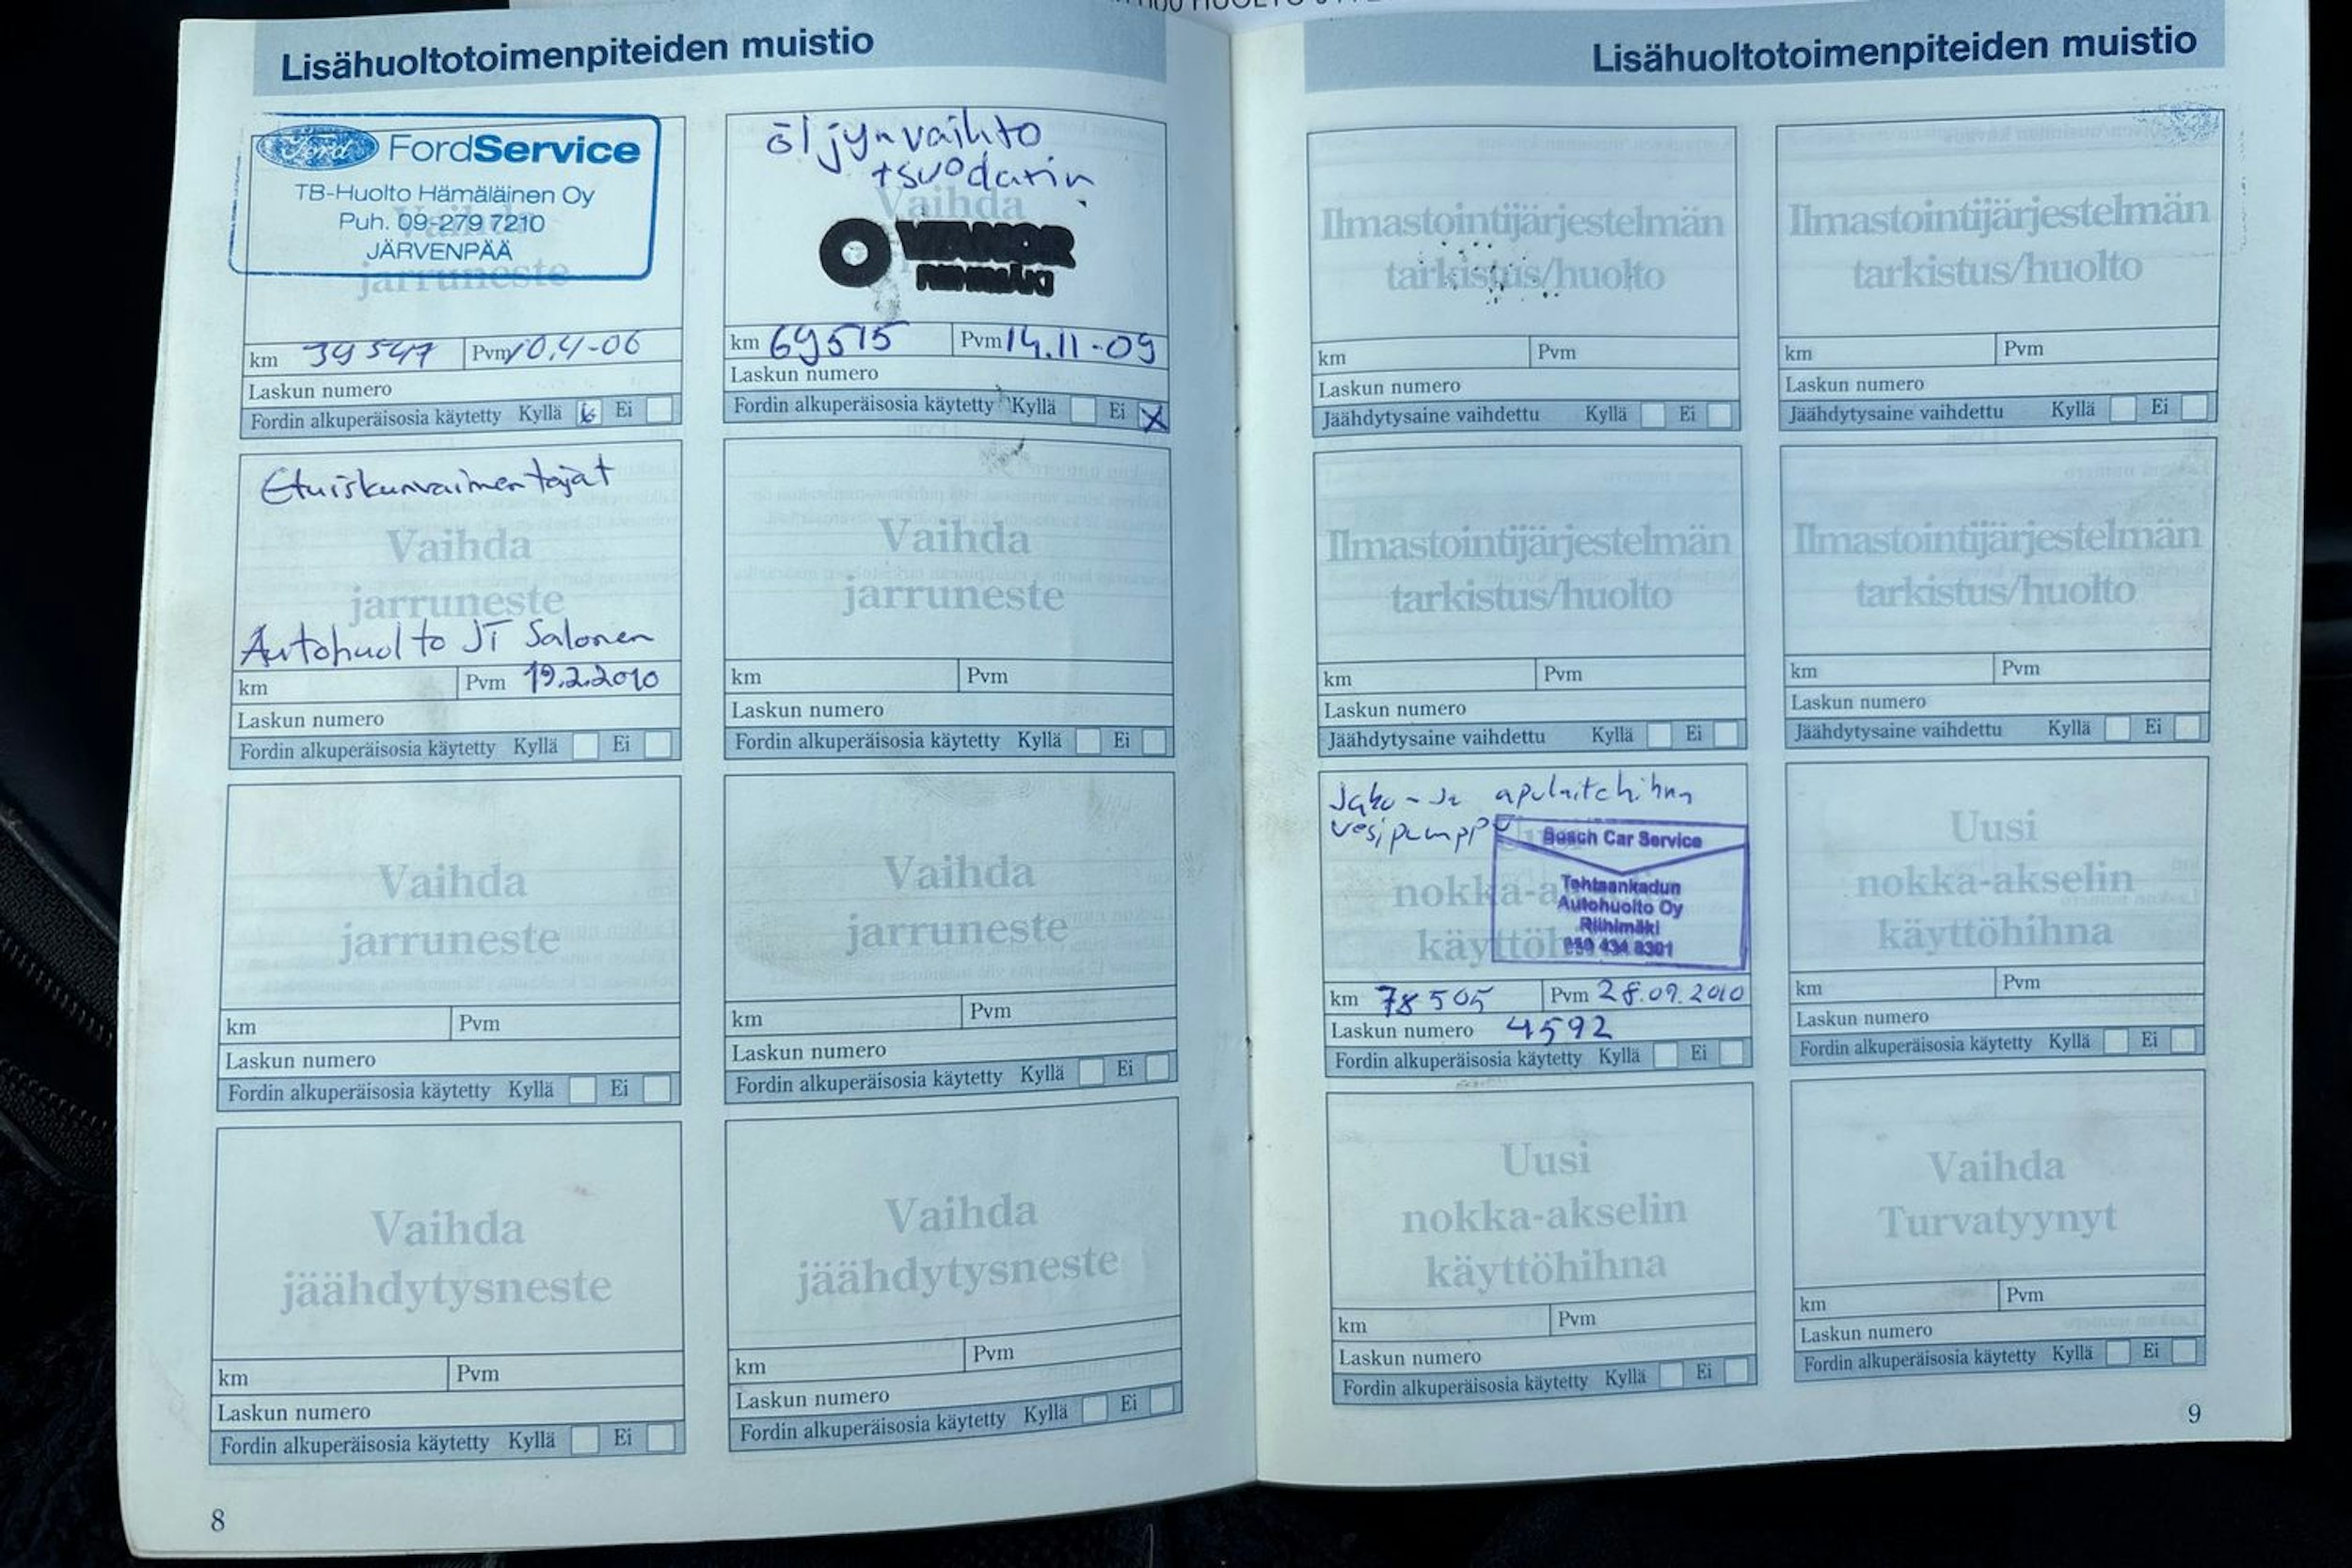 Lisähuoltotoimenpiteiden muistio
Ford FordService
TB-Huolto Hämäläinen Oy
Puh. 09-279 7210
JÄRVENPÄÄ
jarruneste
km 39 547 Pvm 10.4-06
Laskun numero
Fordin alkuperäisosia käytetty Kyllä Ei
öljynvaihto
+suodatin
Vaihda
VIANOR
RIIHIMÄKI
km 69515 Pvm 14.11-09
Laskun numero
Fordin alkuperäisosia käytetty Kyllä Ei X
Etuiskunvaimentajat
Vaihda
jarruneste
Autohuolto JT Salonen
km Pvm 19.2.2010
Laskun numero
Fordin alkuperäisosia käytetty Kyllä Ei
Vaihda
jarruneste
km Pvm
Laskun numero
Fordin alkuperäisosia käytetty Kyllä Ei
Vaihda
jarruneste
km Pvm
Laskun numero
Fordin alkuperäisosia käytetty Kyllä Ei
Vaihda
jarruneste
km Pvm
Laskun numero
Fordin alkuperäisosia käytetty Kyllä Ei
Vaihda
jäähdytysneste
km Pvm
Laskun numero
Fordin alkuperäisosia käytetty Kyllä Ei
Vaihda
jäähdytysneste
km Pvm
Laskun numero
Fordin alkuperäisosia käytetty Kyllä Ei
8
Lisähuoltotoimenpiteiden muistio
Ilmastointijärjestelmän
tarkistus/huolto
km Pvm
Laskun numero
Jäähdytysaine vaihdettu Kyllä Ei
Ilmastointijärjestelmän
tarkistus/huolto
km Pvm
Laskun numero
Jäähdytysaine vaihdettu Kyllä Ei
Ilmastointijärjestelmän
tarkistus/huolto
km Pvm
Laskun numero
Jäähdytysaine vaihdettu Kyllä Ei
Ilmastointijärjestelmän
tarkistus/huolto
km Pvm
Laskun numero
Jäähdytysaine vaihdettu Kyllä Ei
Jako- ja apulaitehihna
vesipumppu
Bosch Car Service
Tehtaankadun
Autohuolto Oy
Riihimäki
050 434 8301
km 78505 Pvm 28.09.2010
Laskun numero 4592
Fordin alkuperäisosia käytetty Kyllä Ei
Uusi
nokka-akselin
käyttöhihna
km Pvm
Laskun numero
Fordin alkuperäisosia käytetty Kyllä Ei
Uusi
nokka-akselin
käyttöhihna
km Pvm
Laskun numero
Fordin alkuperäisosia käytetty Kyllä Ei
Vaihda
Turvatyynyt
km Pvm
Laskun numero
Fordin alkuperäisosia käytetty Kyllä Ei
9